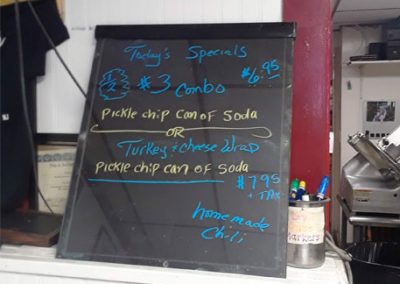 Today's Specials
$6.95
1/2 #3 Combo
Pickle chip can of Soda
OR
Turkey & cheese Wrap
Pickle chip can of soda
$7.95
+ TAX
homemade
Chili
Markers